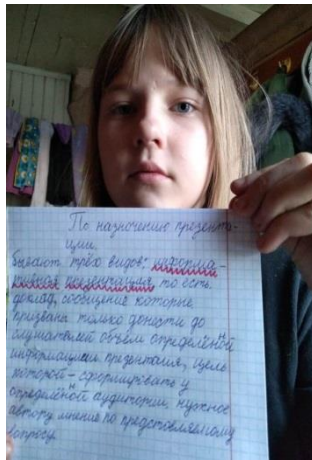 По назначению презента-
ции.
бывают трёх видов: информа-
тивная презентация, то есть
доклад, сообщение которые
призвана только донести до
слушателей объём определёной
информации презентация, цель
которой – сформировать у
определёной аудитории, нужное
автору мнение по представляемому
вопросу